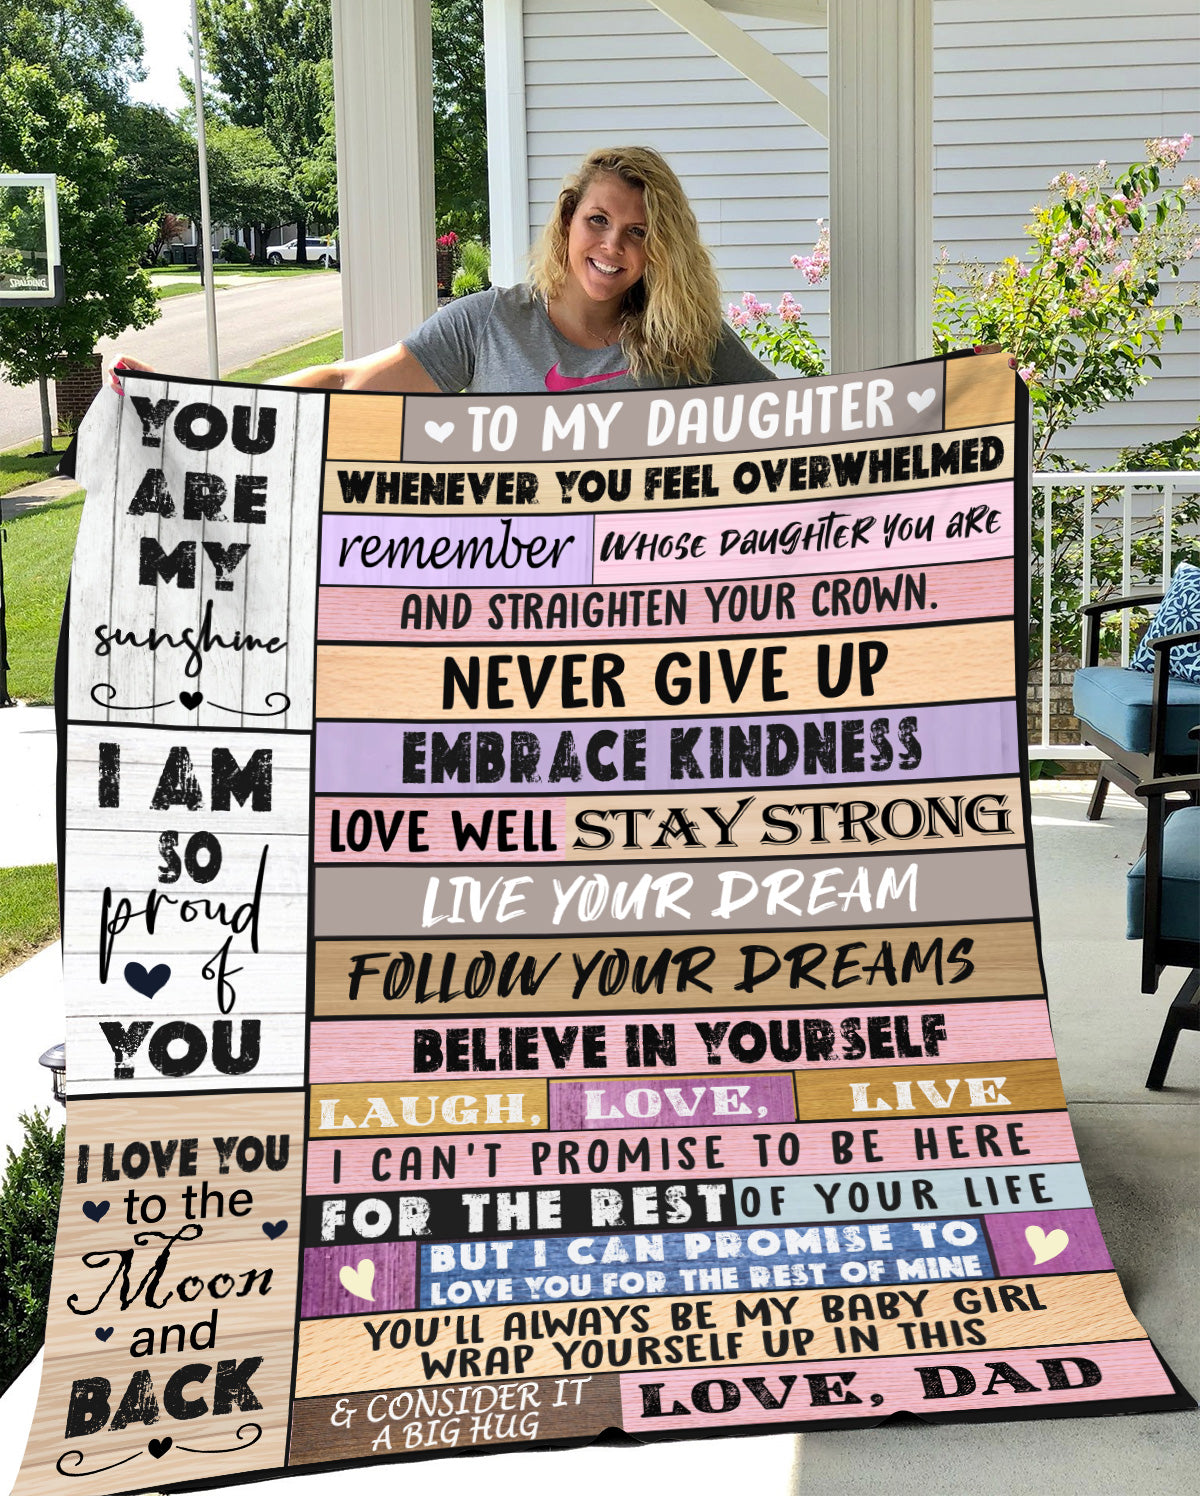 SPALDING
YOU
ARE
MY
sunshine
I AM
SO
proud
of
YOU
I LOVE YOU
to the
Moon
and
BACK
TO MY DAUGHTER
WHENEVER YOU FEEL OVERWHELMED
remember WHOSE DAUGHTER YOU ARE
AND STRAIGHTEN YOUR CROWN.
NEVER GIVE UP
EMBRACE KINDNESS
LOVE WELL STAY STRONG
LIVE YOUR DREAM
FOLLOW YOUR DREAMS
BELIEVE IN YOURSELF
LAUGH, LOVE, LIVE
I CAN'T PROMISE TO BE HERE
FOR THE REST OF YOUR LIFE
BUT I CAN PROMISE TO
LOVE YOU FOR THE REST OF MINE
YOU'LL ALWAYS BE MY BABY GIRL
WRAP YOURSELF UP IN THIS
& CONSIDER IT
A BIG HUG
LOVE, DAD